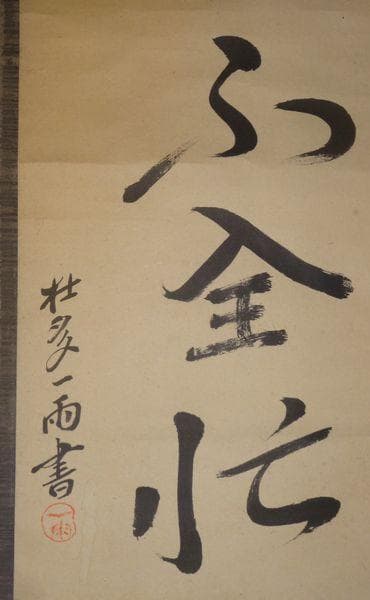 不全忙
杜多一雨書